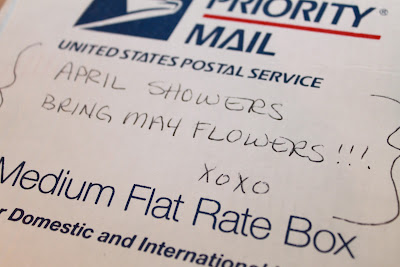 PRIORITY®
MAIL
UNITED STATES POSTAL SERVICE
APRIL SHOWERS
BRING MAY FLOWERS!!!
XOXO
Medium Flat Rate Box
Domestic and International